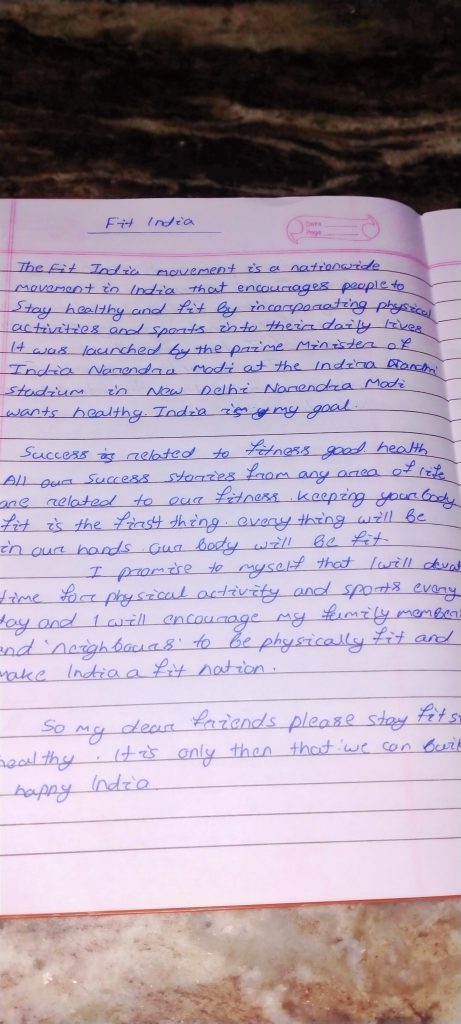 Fit India
Date
Page
The Fit India movement is a nationwide
movement in India that encourages people to
Stay healthy and fit by incorporating physical
activities and sports into their daily lives
It was launched by the prime Minister of
India Narendra Modi at the Indira Gandhi
Stadium in New Delhi Narendra Modi
wants healthy. India is my goal.
Success is related to fitness good health
All our success stories from any area of life
are related to our fitness. keeping your body
fit is the first thing. every thing will be
in our hands our body will be fit.
I promise to myself that I will devot
time for physical activity and sports every
day and I will encourage my family member
and 'neighbours' to be physically fit and
make India a fit nation.
So my dear friends please stay fit
healthy. It is only then that we can buil
happy India.